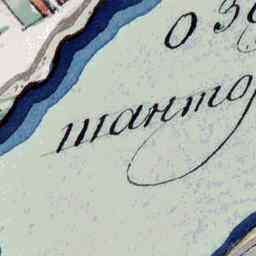 О З
шанто